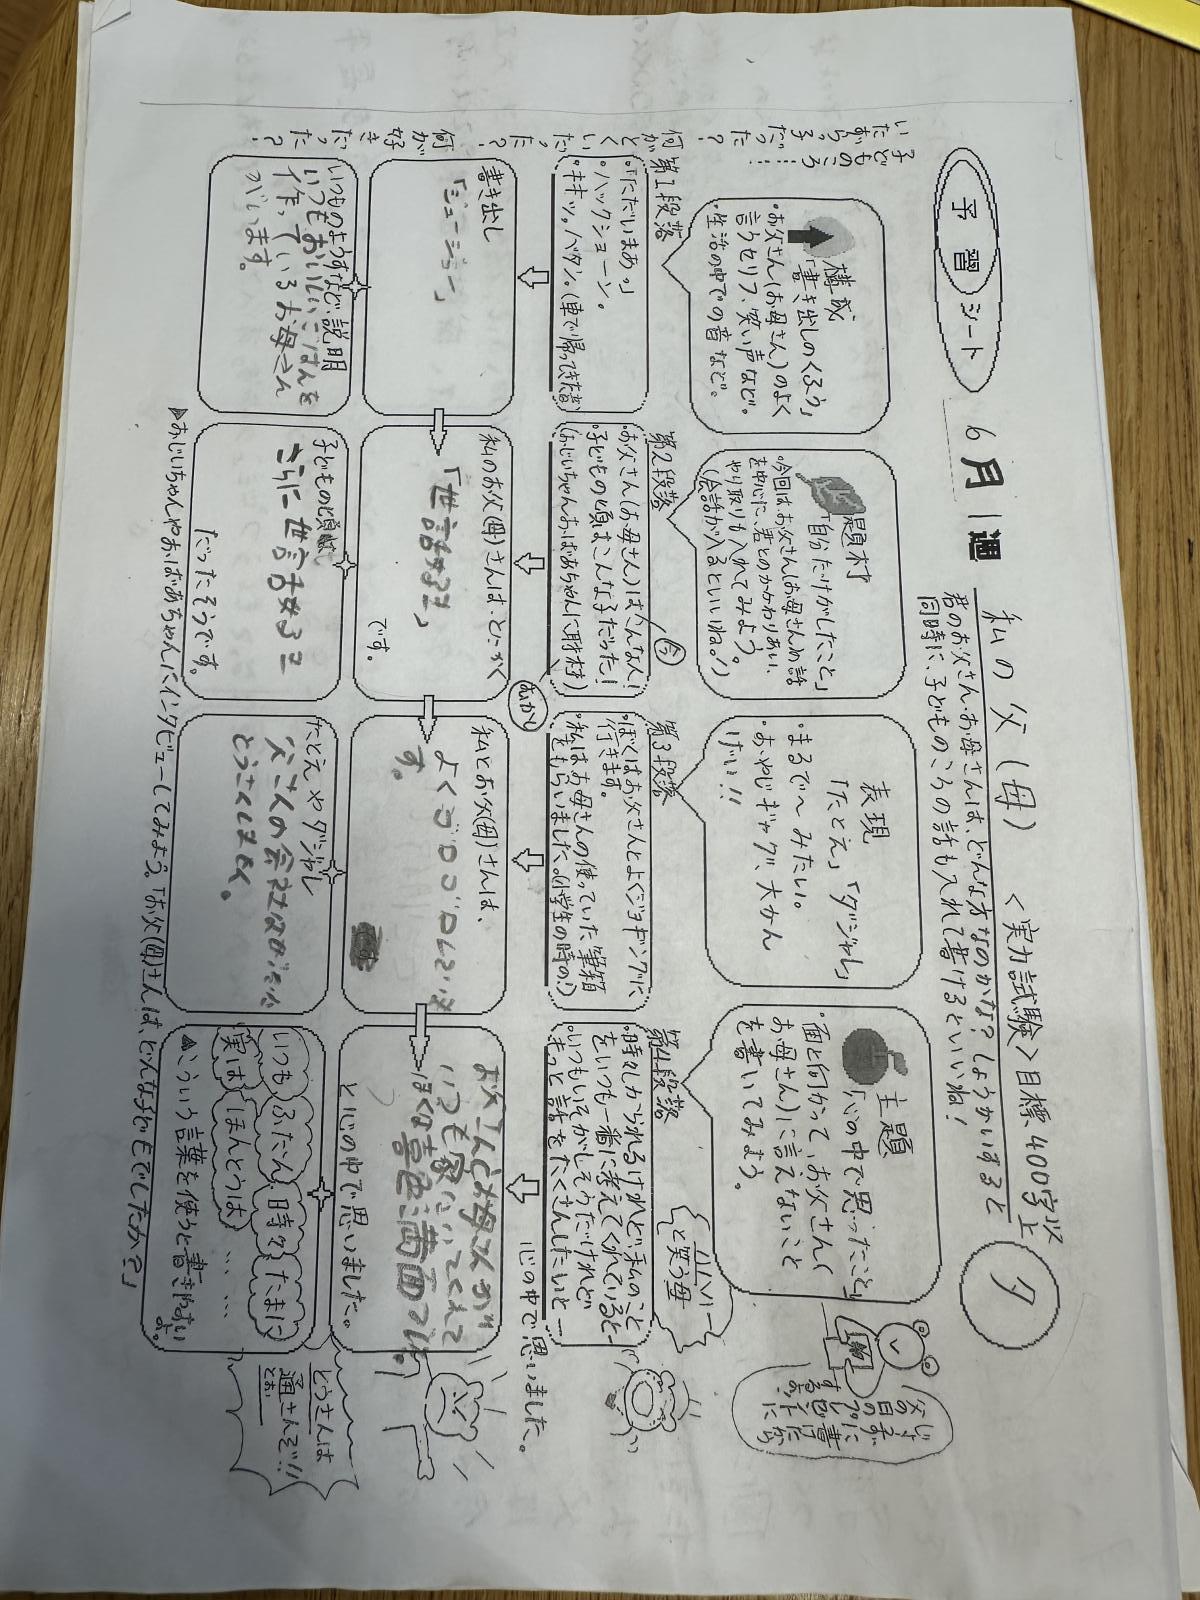 予習シート
6月1週
私の父(母)
<実力試験>目標400字以上
夕
君のお父さん・お母さんは、どんな方なのかな?しょうかいすると
同時に、子どものころの話も入れて書けるといいね!
構成
「書き出しのくふう」
・お父さん(お母さん)のよく
言うセリフ、笑い声など。
・生活の中での音など。
題材
「自分だけがしたこと」
・今回はお父さん(お母さん)の話
を中心に、君とのかかわりあい、
やり取りも入れてみよう。
(会話が入るといいね!)
表現
「たとえ」「ダジャレ」
・まるで〜みたい。
・おやじギャグ、大かん
げい!!
主題
「心の中で思ったこと」
・面と向かって、お父さん(
お母さん)に言えないこと
を書いてみよう。
父の日の
プレゼントに
第1段落
・「ただいまあ。」
・ハックショーン。
・キキッ。バタン。(車で帰ってきた音)
第2段落
今
・お父さん(お母さん)はこんな人!
・子どもの頃はこんな子だった!
(おじいちゃんおばあちゃんに取材)
むかし
第3段落
・ぼくはお父さんとよくジョギングに
行きます。
・私はお母さんの使っていた筆箱
をもらいました。(小学生の時の!)
第4段落
・時々しかられるけれど、私のこと
をいつも一番に考えてくれていると—
・いつもいそがしそうだけれど
もっと話をたくさんしたいと—
心の中で思いました。
と笑う母
子どものころ……
いたずらっ子だった?
何がとくいだった?
何が好きだった?
書き出し
「ジュージュー」
私のお父(母)さんは、とにかく
「世話好き」
です。
私とお父(母)さんは、
よくゴロゴロしていま
す。
お父さんとお母さんが
いつも家にいてくれて
ぼくは喜色満面です。
と心の中で思いました。
いつものようすなど、説明
いつもおいしいごはんを
作っているお母さん
がいます。
子どもの頃は
さらに世話好き
だったそうです。
たとえやダジャレ
父さんの会社はぜったい
とうさんしません。
いつも ふだん 時々 たまに
実は ほんとうは ……
▲こういう言葉を使うと書きやすい
よ。
とうさんは
通さんぞ!!
とお
▲おじいちゃんやおばあちゃんにインタビューしてみよう。「お父(母)さんは、どんな子どもでしたか?」